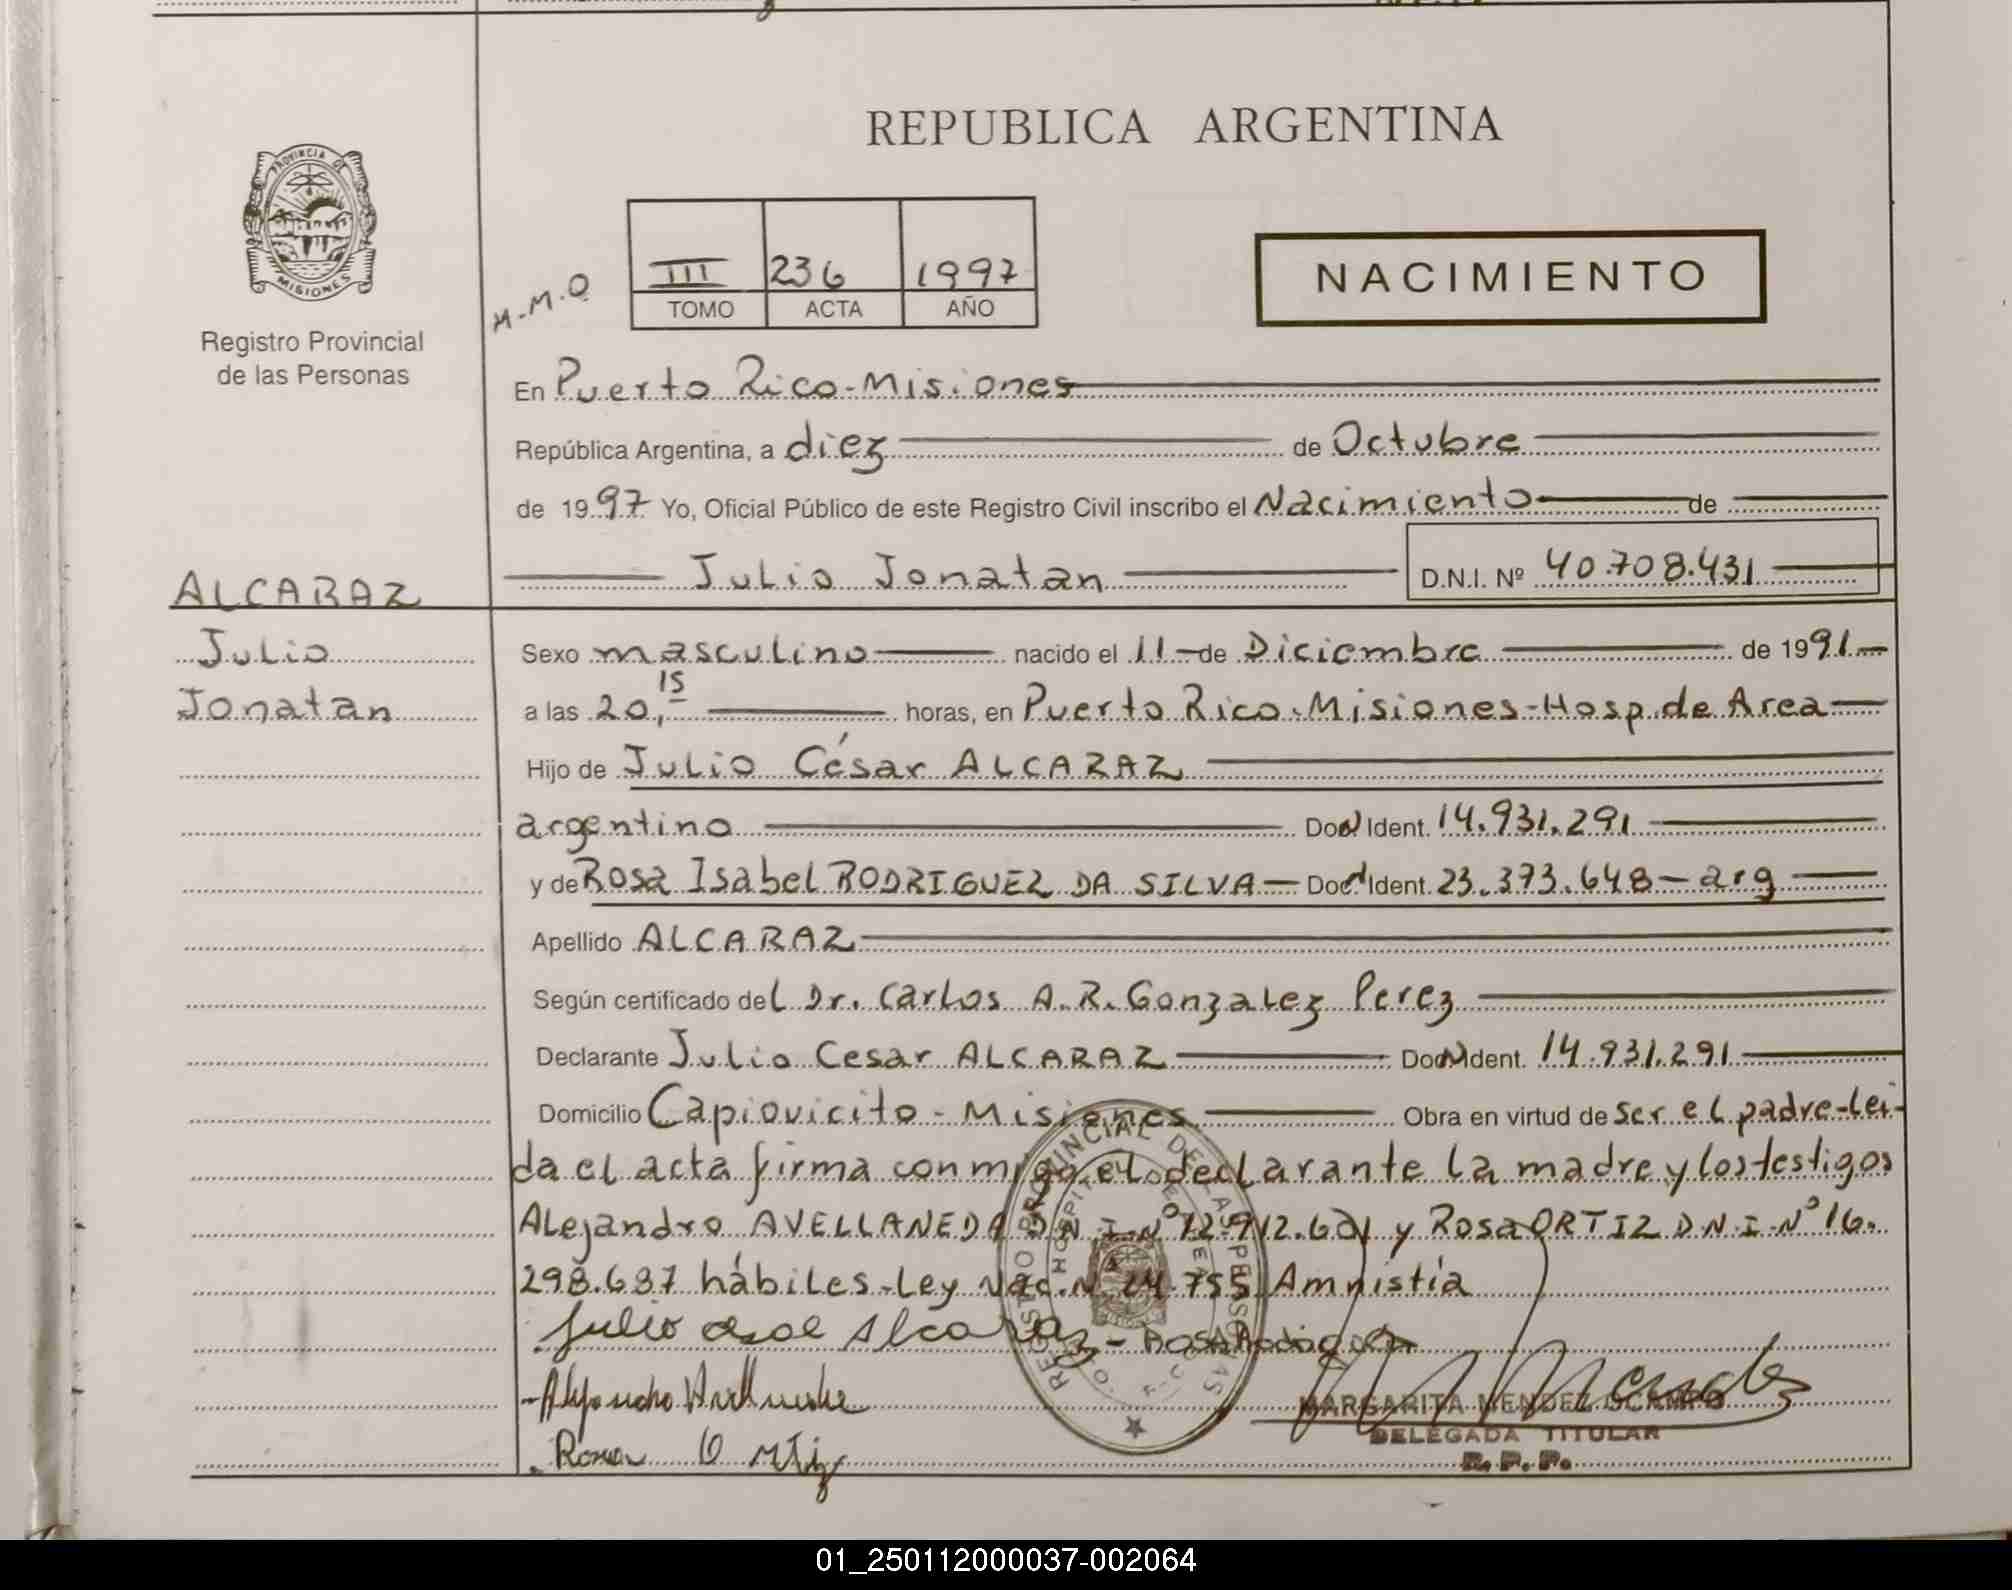 REPUBLICA ARGENTINA
PROVINCIA DE
MISIONES
Registro Provincial
de las Personas
M.M.O
III 236 1997
TOMO ACTA AÑO
NACIMIENTO
En Puerto Rico-Misiones
República Argentina, a diez de Octubre
de 1997 Yo, Oficial Público de este Registro Civil inscribo el Nacimiento de
Julio Jonatan D.N.I. Nº 40.708.431
ALCARAZ
Julio
Jonatan
Sexo masculino nacido el 11 de Diciembre de 1991
a las 20,15 horas, en Puerto Rico-Misiones-Hosp.de Area
Hijo de Julio César ALCARAZ
argentino Doc N Ident. 14.931.291
y de Rosa Isabel RODRIGUEZ DA SILVA - Doc N Ident. 23.373.648 - arg
Apellido ALCARAZ
Según certificado del Dr. Carlos A.R. Gonzalez Perez
Declarante Julio Cesar ALCARAZ Doc N Ident. 14.931.291
Domicilio Capiovicito - Misiones Obra en virtud de ser el padre-lei-
da el acta firma conmigo el declarante la madre y los testigos
Alejandro AVELLANEDA D.N.I.Nº 12.912.601 y Rosa ORTIZ D.N.I.Nº 16.
298.687 hábiles-Ley Nac.Nº 24.755 Amnistía
Julio Alcaraz - Rosa Rodriguez
Alejandro Avellaneda
Rosa Ortiz
REGISTRO PROVINCIAL DE LAS PERSONAS
HOSPITAL
MARGARITA MENDEZ OCAMPO
DELEGADA TITULAR
R.P.P.
01_250112000037-002064